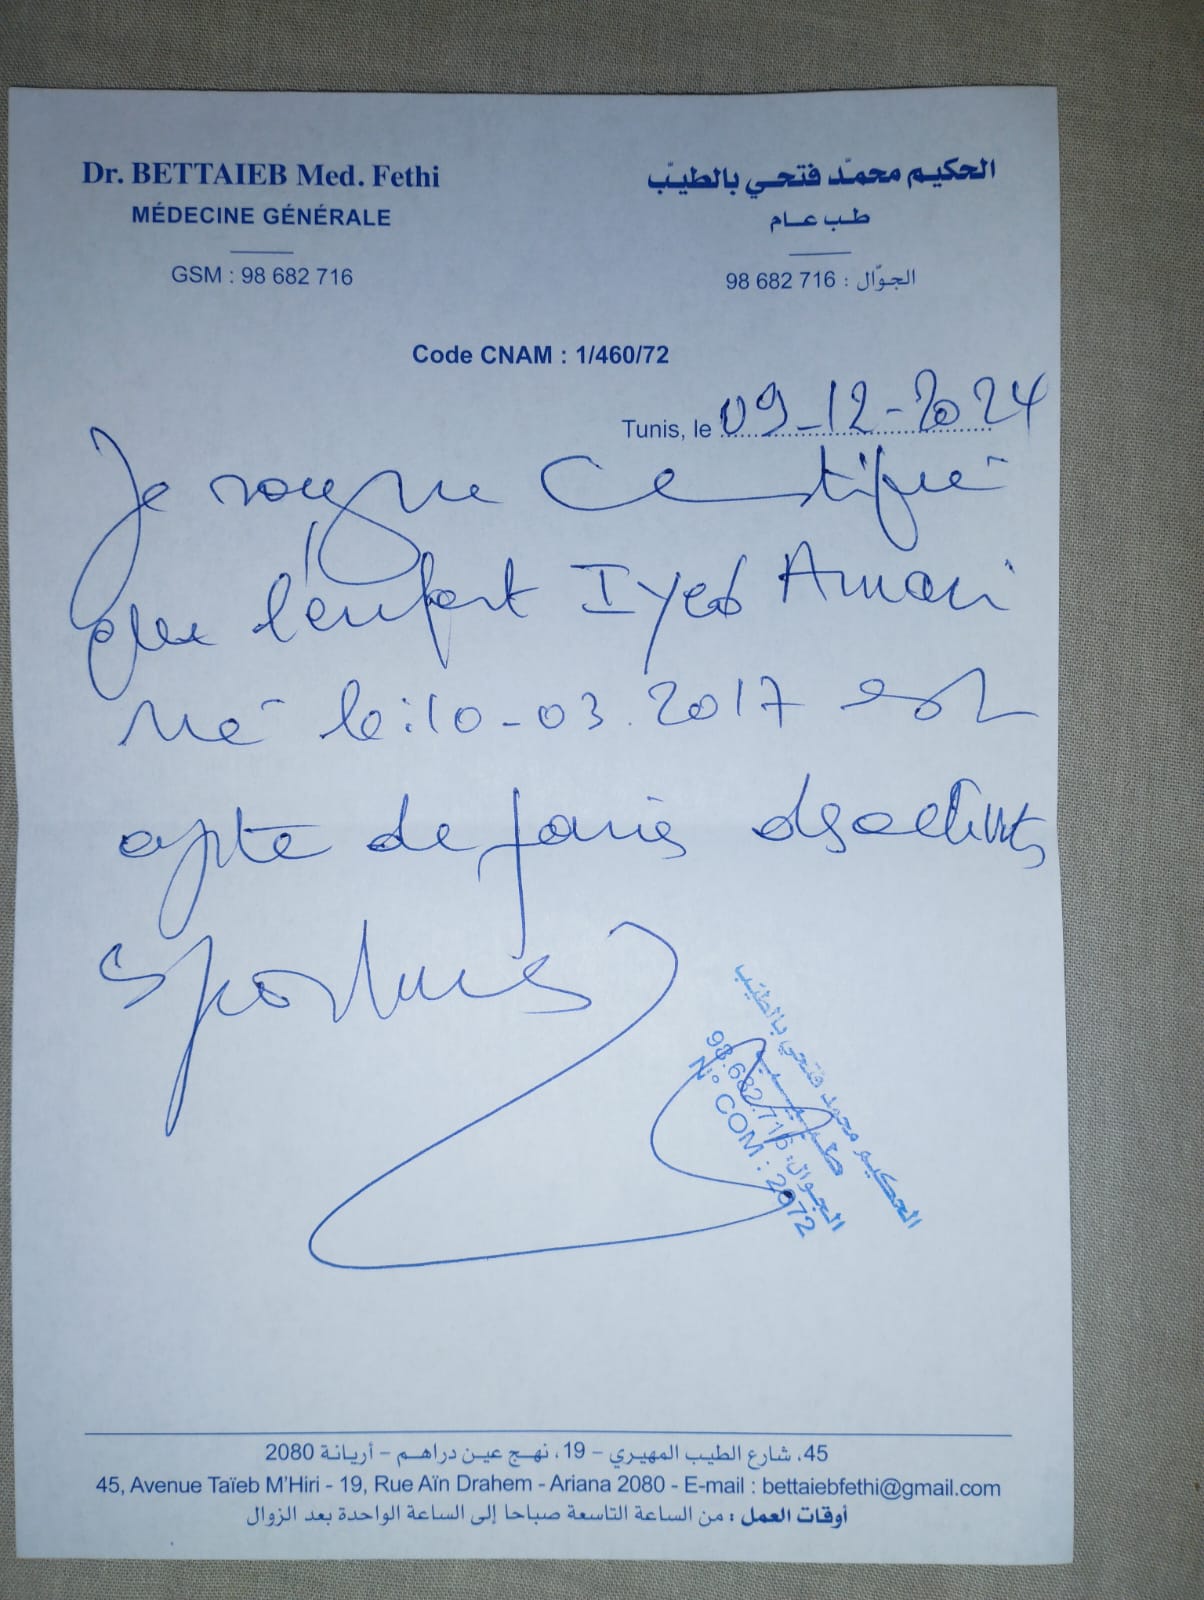 Dr. BETTAIEB Med. Fethi
MÉDECINE GÉNÉRALE
GSM : 98 682 716
الحكيم محمّد فتحي بالطيّب
طب عام
الجوّال : 98 682 716
Code CNAM : 1/460/72
Tunis, le 09-12-2024
Je soussigné Certifié
que l'enfant Iyed Amari
né le : 10-03.2017 est
apte de faire des activités
sportives
الحكيم محمد فتحي بالطيّب
طبيب
الجوال: 98.682.716
N° COM : 2072
45، شارع الطيب المهيري – 19، نهج عين دراهم – أريانة 2080
45, Avenue Taïeb M'Hiri - 19, Rue Aïn Drahem - Ariana 2080 - E-mail : bettaiebfethi@gmail.com
أوقات العمل : من الساعة التاسعة صباحا إلى الساعة الواحدة بعد الزوال